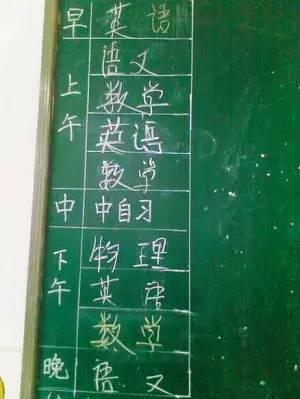 早 英语
语文
上午 数学
英语
数学
中 中自习
下午 物理
英语
数学
晚 语文